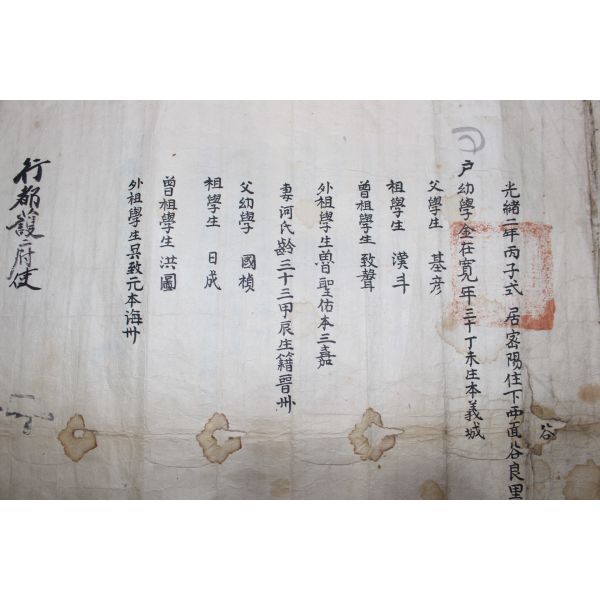 光緒二年丙子式 居密陽住下西面谷良里
谷
戶幼學金在寬年三十丁未生本義城
父學生 基彦
祖學生 漢斗
曾祖學生 致聲
外祖學生曺聖佑本三嘉
妻河氏齡三十三甲辰生籍晉州
父幼學 國楨
祖學生 日成
曾祖學生 洪圖
外祖學生吳致元本海州
行都護府使